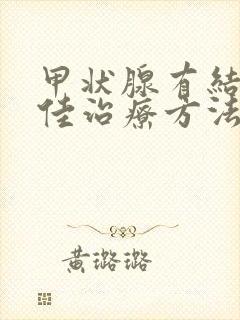 甲状腺有結
佳治療方法
黃璐璐